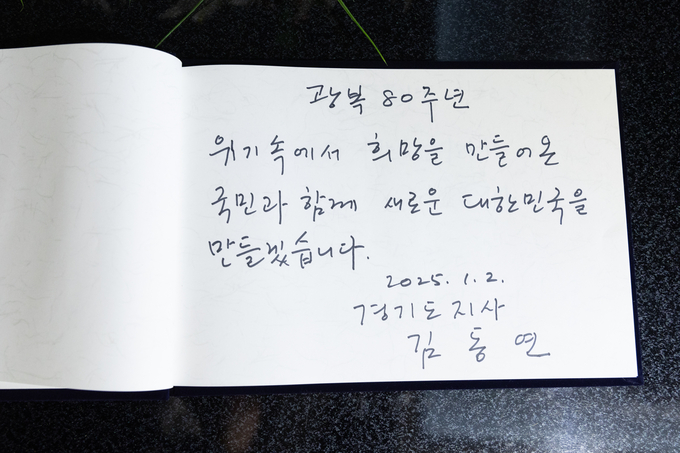 광복 80주년
위기속에서 희망을 만들어온
국민과 함께 새로운 대한민국을
만들겠습니다.
2025. 1. 2.
경기도지사
김 동 연